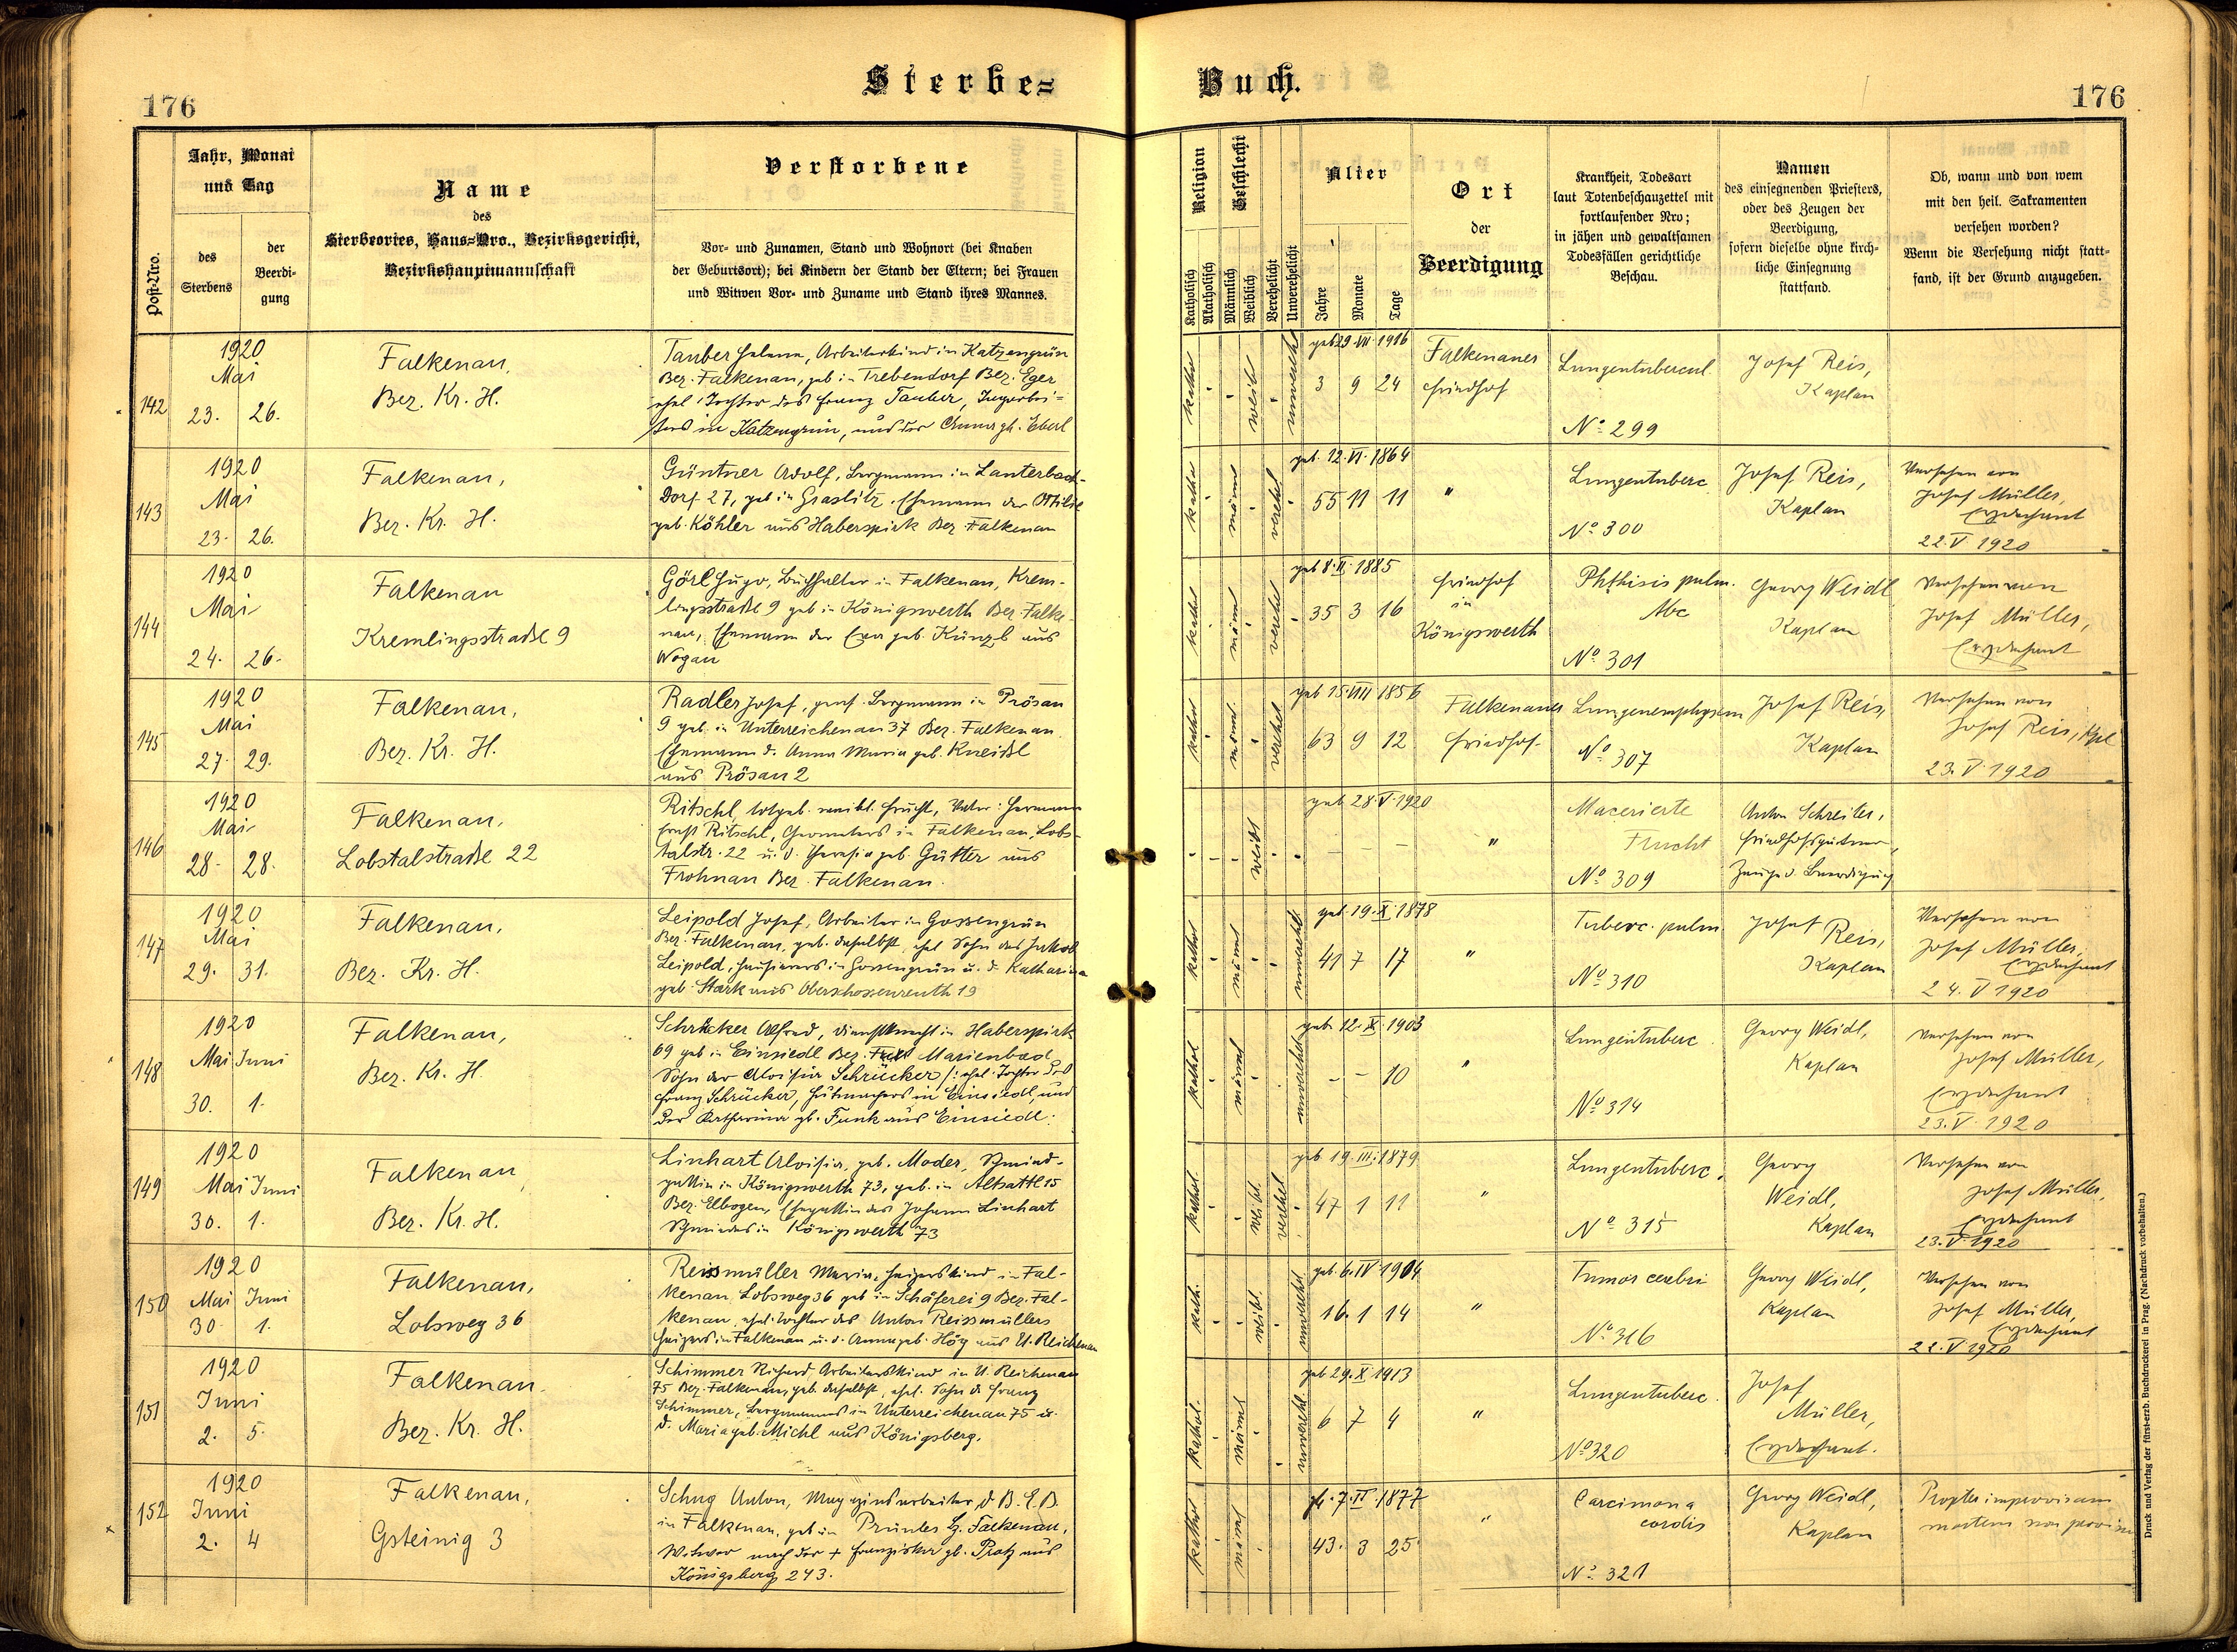 Sterbe=
Buch.
176
176
Post-Nro.
Jahr, Monat
und Tag
des
Sterbens
der
Beerdi-
gung
Name
des
Sterbeortes, Haus=Nro., Bezirksgericht,
Bezirkshauptmannschaft
Verstorbene
Vor- und Zunamen, Stand und Wohnort (bei Knaben
der Geburtsort); bei Kindern der Stand der Eltern; bei Frauen
und Witwen Vor- und Zuname und Stand ihres Mannes.
Religion
Katholisch
Akatholisch
Geschlecht
Männlich
Weiblich
Verehelicht
Unverehelicht
Alter
Jahre
Monate
Tage
Ort
der
Beerdigung
Krankheit, Todesart
laut Totenbeschauzettel mit
fortlaufender Nro;
in jähen und gewaltsamen
Todesfällen gerichtliche
Beschau.
Namen
des einsegnenden Priesters,
oder des Zeugen der
Beerdigung,
sofern dieselbe ohne kirch-
liche Einsegnung
stattfand.
Ob, wann und von wem
mit den heil. Sakramenten
versehen worden?
Wenn die Versehung nicht statt-
fand, ist der Grund anzugeben.
142
1920
Mai
23. 26.
Falkenau,
Bez. Kr. H.
Tauber Helene, Arbeiterkind in Katzengrün
Bez. Falkenau, geb. in Trebendorf Bez. Eger
ehel. Tochter des Franz Tauber,
in Katzengrün, und der Anna gb. Eberl
weibl
unverehel
geb 29. VII. 1916
3 9 24
Falkenauer
Friedhof
Lungentubercul.
No 299
Josef Reis,
Kaplan
143
1920
Mai
23. 26.
Falkenau,
Bez. Kr. H.
Güntner Adolf, Bergmann in Lauterbach-
Dorf 27, geb in Graslitz. Ehemann der Ottilie
geb. Köhler aus Haberspirk Bez Falkenau
männl
verehel
geb. 12. VI. 1864
55 11 11
"
Lungentuberc
No 300
Josef Reis,
Kaplan
Versehen von
Josef Müller,
Erzdechant
22. V. 1920
144
1920
Mai
24. 26.
Falkenau
Kremlingsstraße 9
Görl Hugo, Buchhalter in Falkenau, Krem-
lingsstraße 9 geb in Königswerth Bez. Falke-
nau, Ehemann der Eva geb. Künzl aus
Wogau
kathol
männl
verehel
geb 8. II. 1885
35 3 16
Friedhof
in
Königswerth
Phthisis pulm.
No 301
Georg Weidl
Kaplan
Versehen von
Josef Müller,
Erzdechant
145
1920
Mai
27. 29.
Falkenau,
Bez. Kr. H.
Radler Josef, Bergmann in Prösau
9 geb. in Unterreichenau 37 Bez. Falkenau
Ehemann d. Anna Maria geb. Kneißl
aus Prösau 2
kathol
männl.
verehel
geb 15. VIII 1856
63 9 12
Falkenauer
Friedhof
Lungenemphysem
No 307
Josef Reis,
Kaplan
Versehen von
Josef Reis, Kpl
23. V. 1920
146
1920
Mai
28. 28.
Falkenau,
Lobstalstraße 22
Ritschl, totgeb. weibl. Frucht, Vater: Hermann
Ernst Ritschl, Geometers in Falkenau, Lobs-
talstr. 22 u. d. Theresia geb. Gütter aus
Frohnau Bez. Falkenau.
weibl
geb 28. V. 1920
"
Macerierte
Frucht
No 309
Anton Schreiter,
Zeuge d. Beerdigung
147
1920
Mai
29. 31.
Falkenau,
Bez. Kr. H.
Leipold Josef, Arbeiter in Gossengrün
Bez. Falkenau, geb. daselbst, ehel Sohn des Jakob
Leipold, Hausierers in Gossengrün u. d. Katharina
geb. Stark aus Oberschossenreuth 19
kathol
männl
unverehel
geb. 19. X. 1878
41 7 17
"
Tuberc. pulm.
No 310
Josef Reis,
Kaplan
Versehen von
Josef Müller,
Erzdechant
24. V 1920
148
1920
Mai Juni
30. 1.
Falkenau,
Bez. Kr. H.
Schrücker Alfred, Dienstknecht in Haberspirk
69 geb in Einsiedl Bez. Marienbad
Sohn der Aloisia Schrücker /: ehel. Tochter des
Franz Schrücker, Hutmachers in Einsiedl, und
der Katharina gb. Funk aus Einsiedl :
kathol
männl
unverehel
geb. 12. X. 1903
– – 10
"
Lungentuberc.
No 314
Georg Weidl,
Kaplan
Versehen von
Josef Müller,
Erzdechant
23. V. 1920
149
1920
Mai Juni
30. 1.
Falkenau,
Bez. Kr. H.
Linhart Aloisia, geb. Moder, Schmied-
gattin in Königswerth 73, geb. in Altsattl 15
Bez. Elbogen, Ehegattin des Johann Linhart
Schmiedes in Königswerth 73
kathol.
weibl.
verehel
geb 19. III. 1879
47 1 11
"
Lungentuberc.
No 315
Georg
Weidl,
Kaplan
Versehen von
Josef Müller,
Erzdechant
23. V. 1920
150
1920
Mai Juni
30 1.
Falkenau,
Lobsweg 36
Reissmüller Maria, Heizerskind in Fal-
kenau Lobsweg 36 geb in Schäferei 9 Bez. Fal-
kenau, ehel. Tochter des Anton Reissmüllers
Heizers in Falkenau u. d. Anna geb. Höy aus U. Reichenau
kath.
weibl.
unverehel
geb. 6. IV 1904
16. 1 14
"
Tumor cerebri
No 316
Georg Weidl,
Kaplan
Versehen von
Josef Müller,
Erzdechant
22. V 1920
151
1920
Juni
2. 5.
Falkenau.
Bez. Kr. H.
Schimmer Richard, Arbeiterskind in U. Reichenau
75 Bez. Falkenau, geb. daselbst, ehel. Sohn d. Franz
Schimmer, Bergmanns in Unterreichenau 75 u.
d. Maria geb. Michl aus Königsberg.
kathol.
männl
unverehel
geb 29. X. 1913
6 7 4
"
Lungentuberc.
No 320
Josef
Müller,
Erzdechant.
152
1920
Juni
2. 4
Falkenau,
Gsteinig 3
Schug Anton, Magazinsarbeiter d. B. E. B.
in Falkenau, geb in Prünles Bz. Falkenau,
Witwer nach der + Franziska gb. Protz aus
Königsberg 243.
kathol
männl
7. II. 1877
43. 3 25
"
Carcimona
cordis
No 321
Georg Weidl,
Kaplan
Propter improvisam
mortem non provisus
Druck und Verlag der fürst-erzb. Buchdruckerei in Prag. (Nachdruck vorbehalten.)